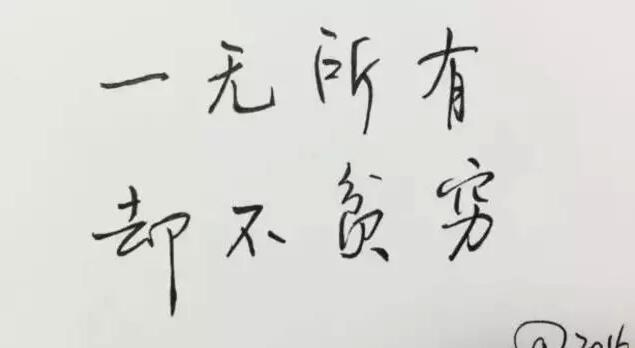 一无所有
却不贫穷
@2016